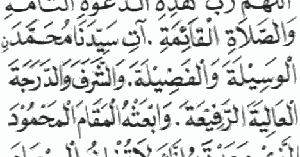 اللهم رب هذه الدعوة التامة
وَالصَّلَاةِ الْقَائِمَةِ . آتِ سَيِّدَنَا مُحَمَّدَنِ
الْوَسِيْلَةَ وَالْفَضِيْلَةَ . وَالشَّرَفَ وَالدَّرَجَةَ
الْعَالِيَةَ الرَّفِيْعَةَ . وَابْعَثْهُ الْمَقَامَ الْمَحْمُوْدَ